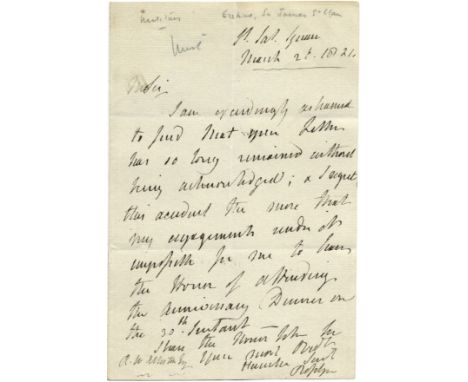 March 2d. 1821.
I am exceedingly ashamed
to find that your Letter
has so long remained without
being acknowledged; & I regret
this accident the more that
my engagements render it
impossible for me to have
the Honor of attending
the Anniversary Dinner on
the 30th Instant
I have the Honor to be
Your most Obedt
Humble Servt
Rosslyn